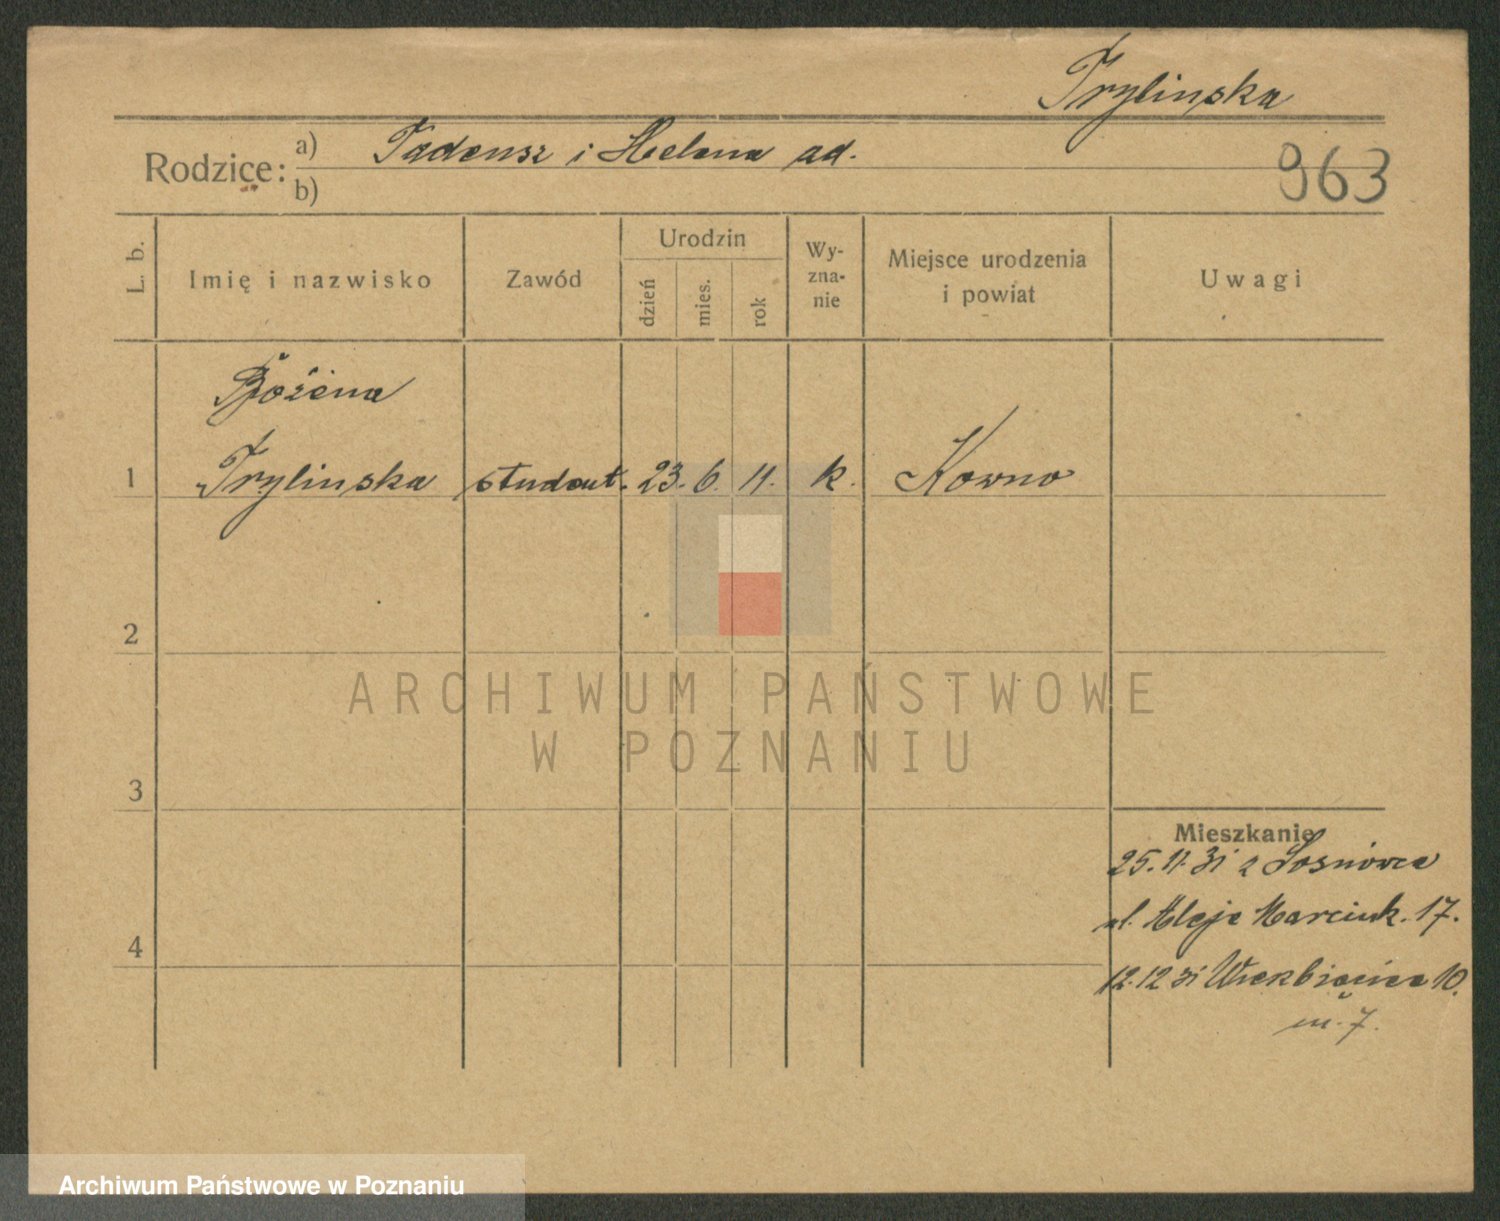 Trylinska
Rodzice: a) Tadeusz i Helena ad.
b)
963
L. b. Imię i nazwisko Zawód Urodzin dzień mies. rok Wy-zna-nie Miejsce urodzenia i powiat Uwagi
Bożena
1 Trylinska student. 23. 6. 11. k. Kowno
2
ARCHIWUM PAŃSTWOWE
W POZNANIU
3
Mieszkanie
25.11.31 z Sosnowca
ul. Aleje Marcink. 17.
4
12.12 31 Wierzbięcice 10.
m. 7.
Archiwum Państwowe w Poznaniu